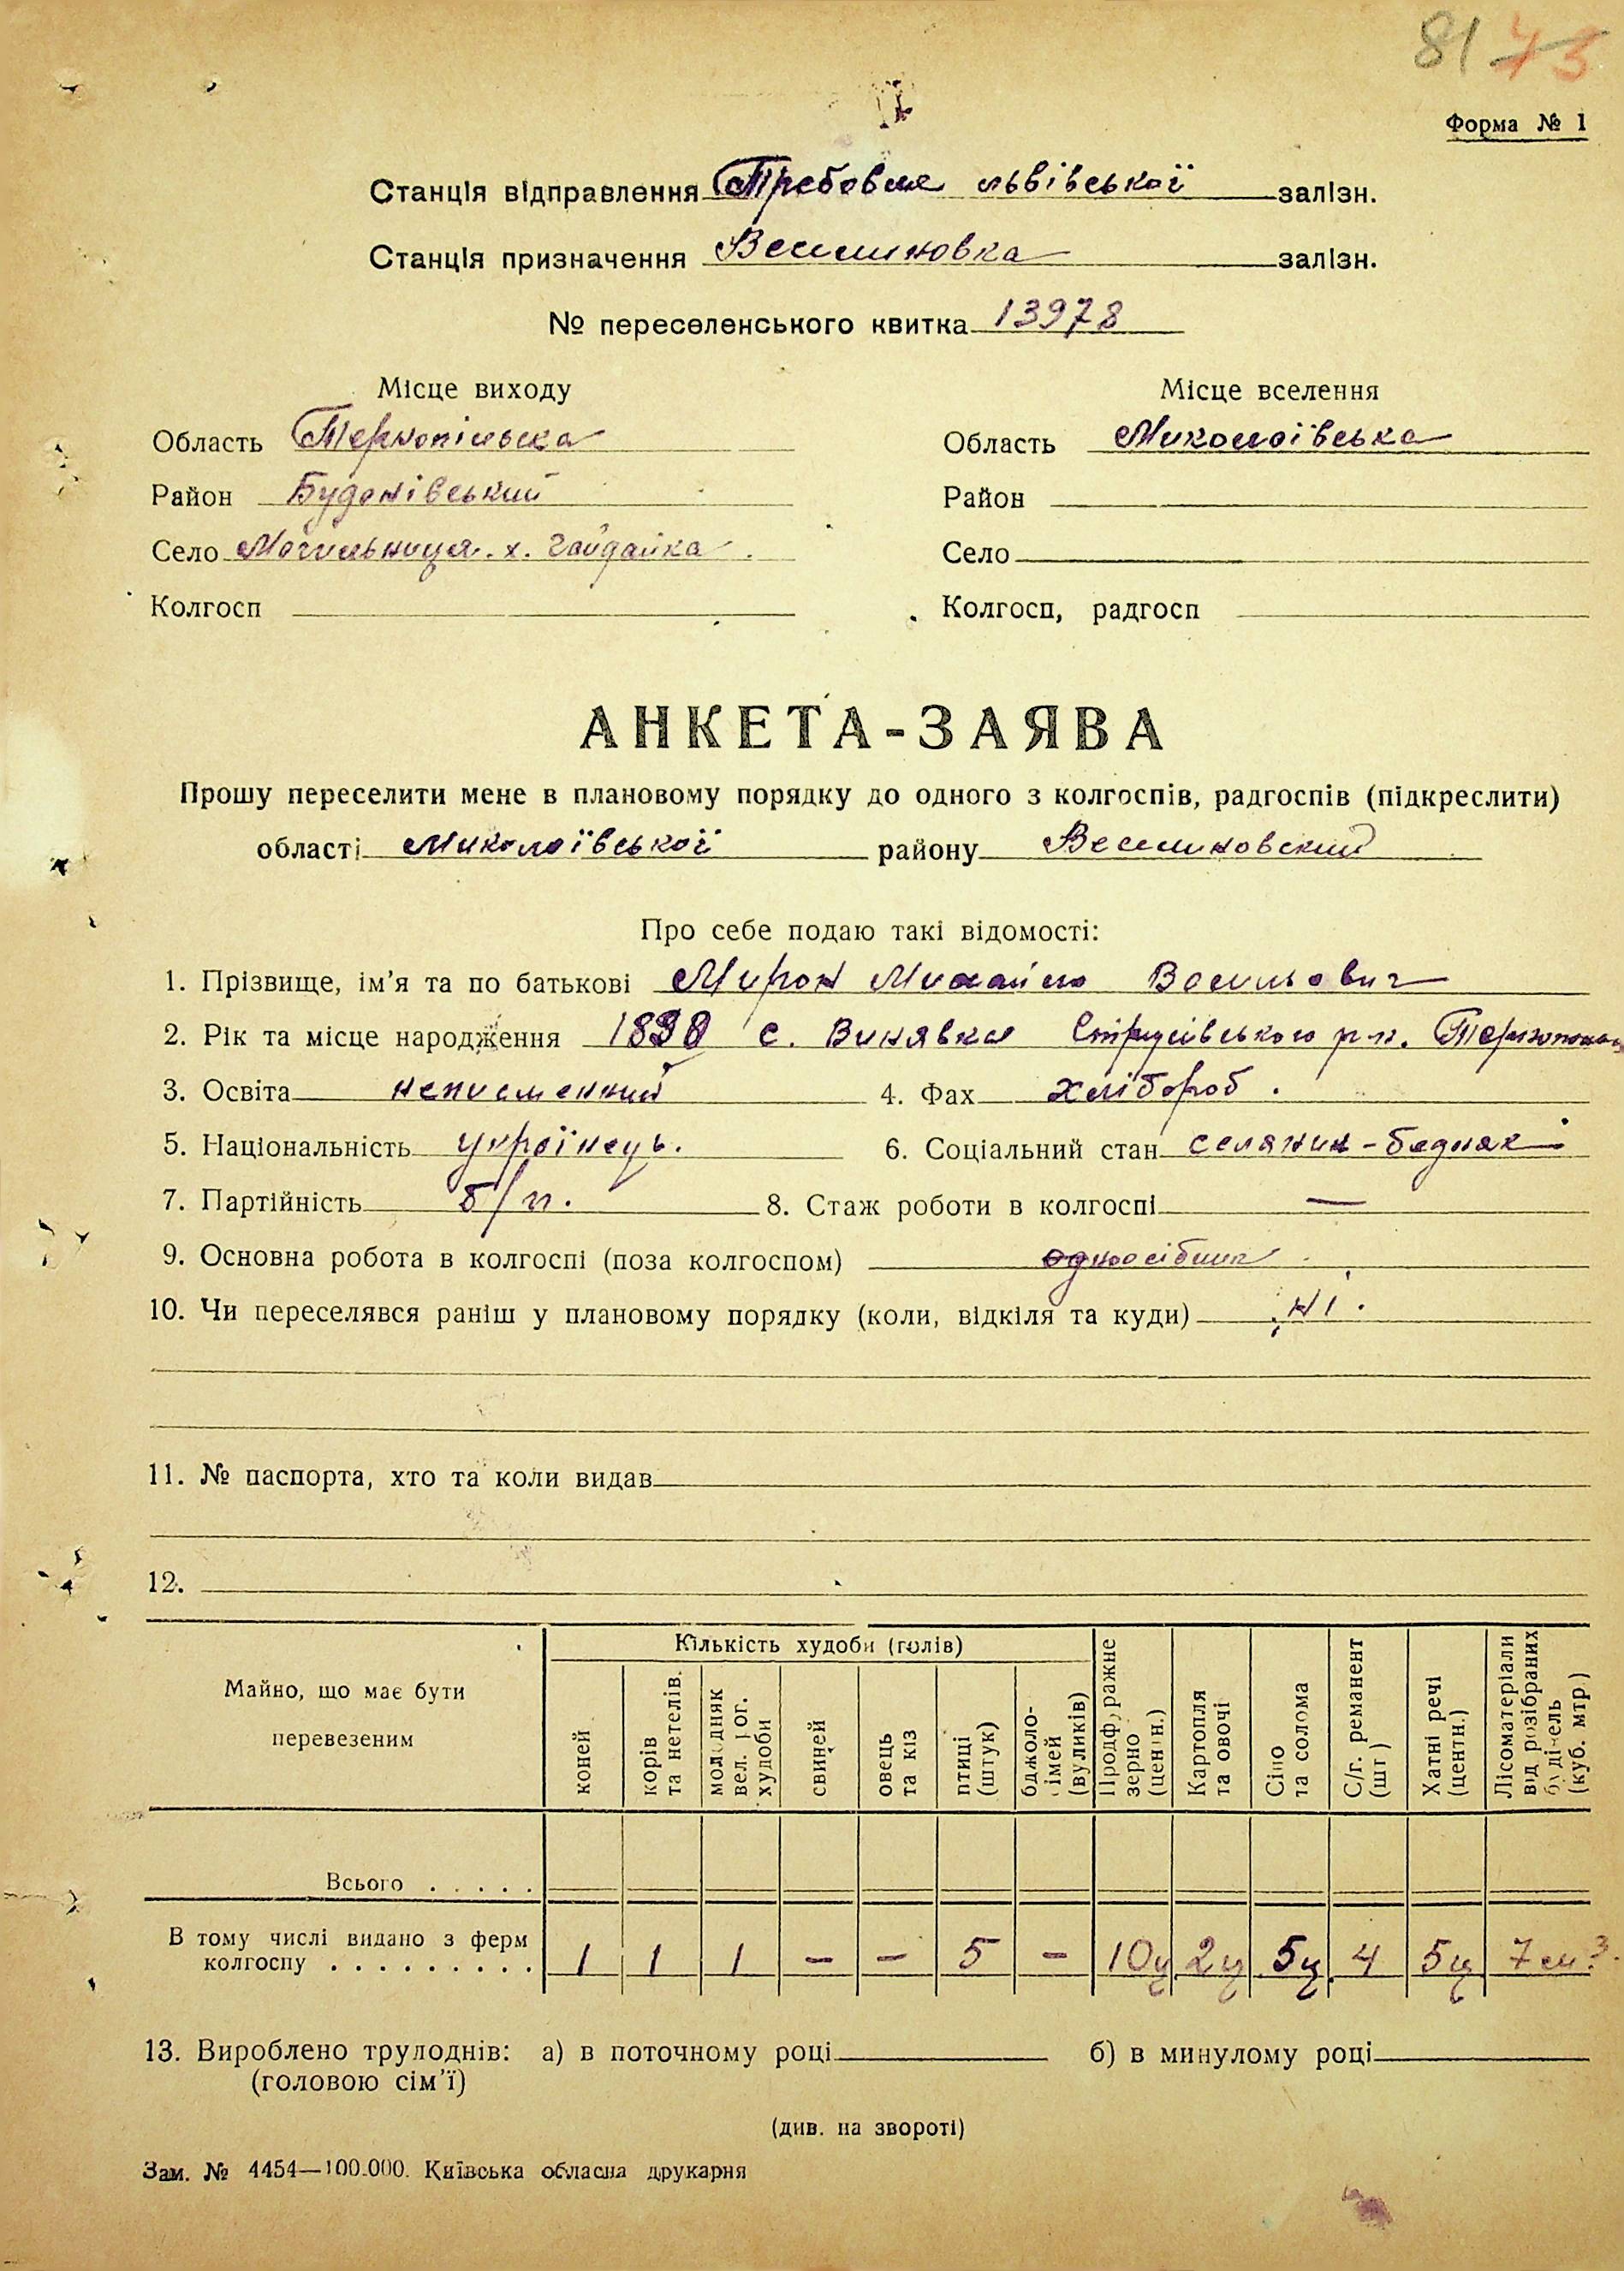 81 73
Форма № 1
Станція відправлення Требовля львівської залізн.
Станція призначення Веселиновка залізн.
№ переселенського квитка 13978
Місце виходу Місце вселення
Область Тернопільська Область Миколаївська
Район Буданівський Район
Село Могильниця х. Гайдайка Село
Колгосп Колгосп, радгосп
АНКЕТА-ЗАЯВА
Прошу переселити мене в плановому порядку до одного з колгоспів, радгоспів (підкреслити)
області Миколаївської району Веселиновский
Про себе подаю такі відомості:
1. Прізвище, ім'я та по батькові Мирон Михайло Васильович
2. Рік та місце народження с. Винявка Струсівського р-н.
3. Освіта неписменний 4. Фах хлібороб.
5. Національність українець. 6. Соціальний стан селянин-бедняк
7. Партійність б/п. 8. Стаж роботи в колгоспі —
9. Основна робота в колгоспі (поза колгоспом) односібник
10. Чи переселявся раніш у плановому порядку (коли, відкіля та куди) ні.
11. № паспорта, хто та коли видав
12.
Майно, що має бути перевезеним
Кількість худоби (голів)
коней
корів та нетелів.
молодняк вел. рог. худоби
свиней
овець та кіз
птиці (штук)
бджоло-сімей (вуликів)
Продфуражне зерно (центн.)
Картопля та овочі
Сіно та солома
С/г. реманент (шт)
Хатні речі (центн.)
Лісоматеріали від розібраних будівель (куб. мтр)
Всього . . . . .
В тому числі видано з ферм
колгоспу . . . . . . . . . 1 1 1 – – 5 – 10ц 2ц 5ц 4 5ц 7 м³.
13. Вироблено трудоднів: а) в поточному році б) в минулому році
(головою сім'ї)
(див. на звороті)
Зам. № 4454—100.000. Київська обласна друкарня